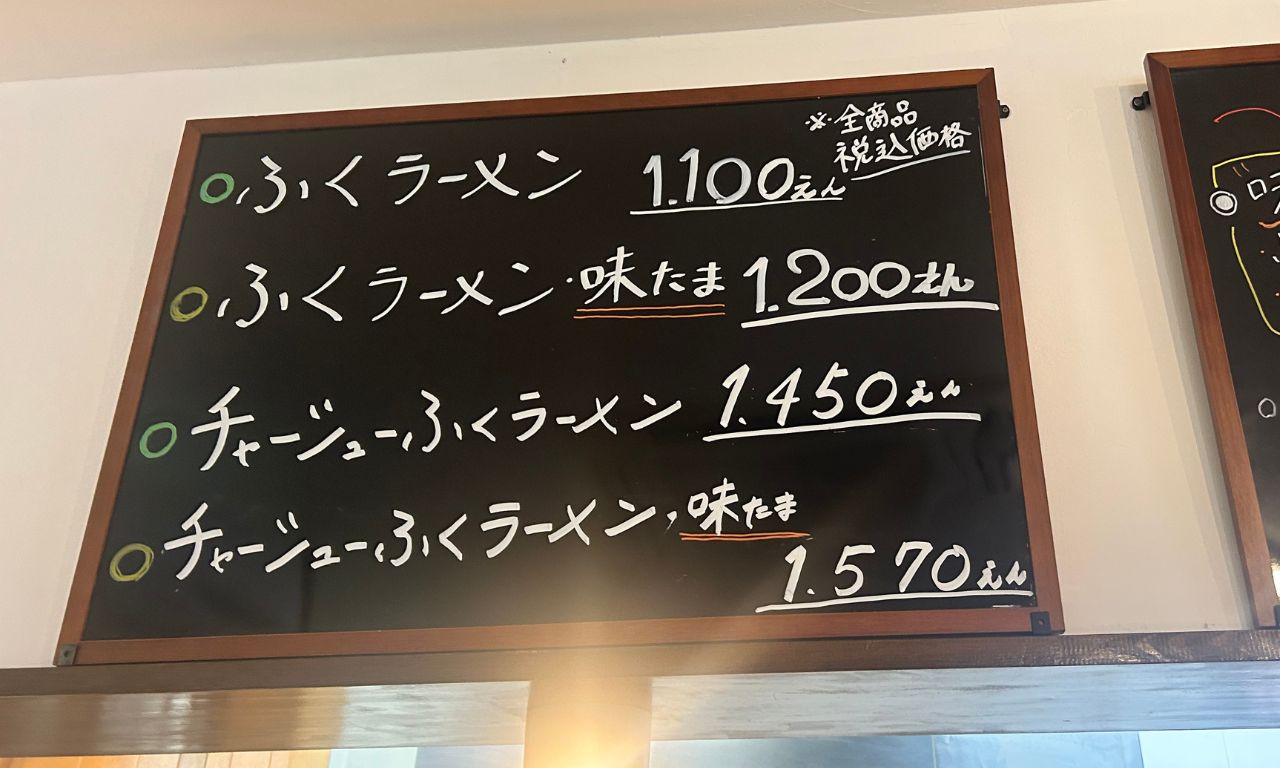 ※全商品
税込価格
ふくラーメン 1.100えん
ふくラーメン・味たま 1.200えん
チャージューふくラーメン 1.450えん
チャージューふくラーメン・味たま
1.570えん